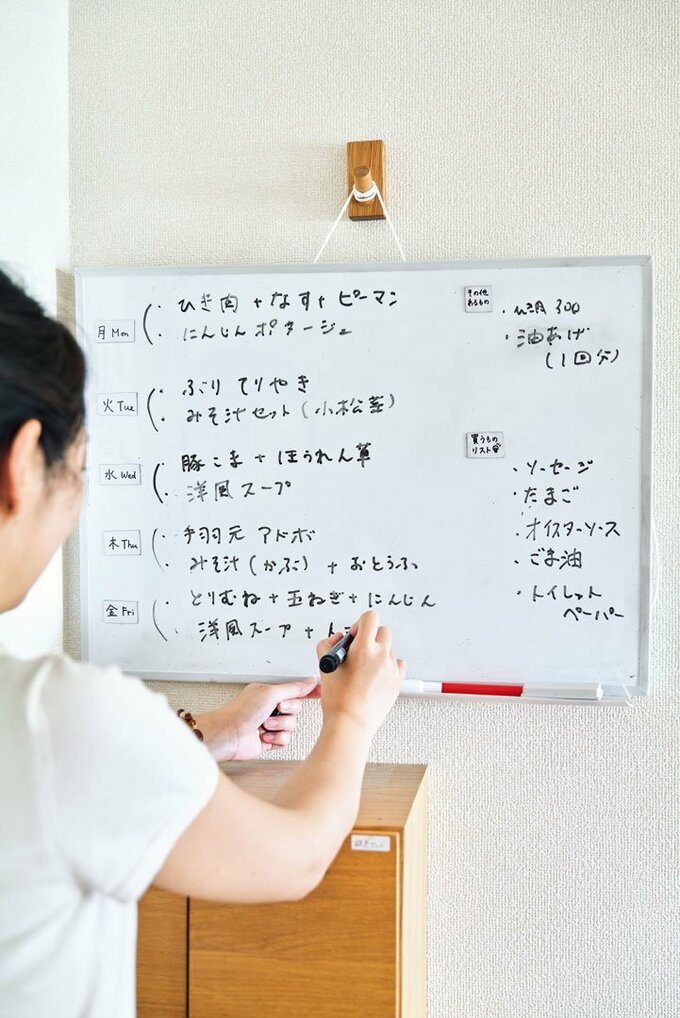 月 Mon
・ひき肉+なす+ピーマン
・にんじんポタージュ
火 Tue
・ぶり てりやき
・みそ汁セット(小松菜)
水 Wed
・豚こま+ほうれん草
・洋風スープ
木 Thu
・手羽元 アドボ
・みそ汁(かぶ)+おとうふ
金 Fri
・とりむね+玉ねぎ+にんじん
・洋風スープ+ト
その他
あるもの
・ひき肉 300
・油あげ
(1回分)
買うもの
リスト
・ソーセージ
・たまご
・オイスターソース
・ごま油
・トイレット
ペーパー